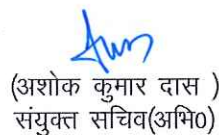 (अशोक कुमार दास )
संयुक्त सचिव(अभि0)